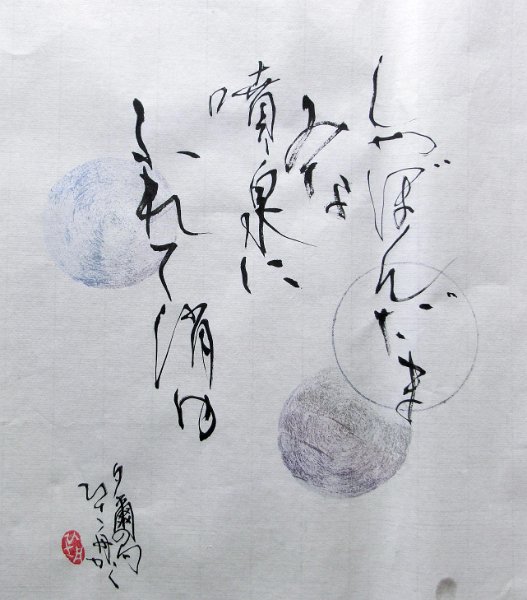 しゃぼんだま
みな
噴泉に
ふれて消ゆ
夕爾の句